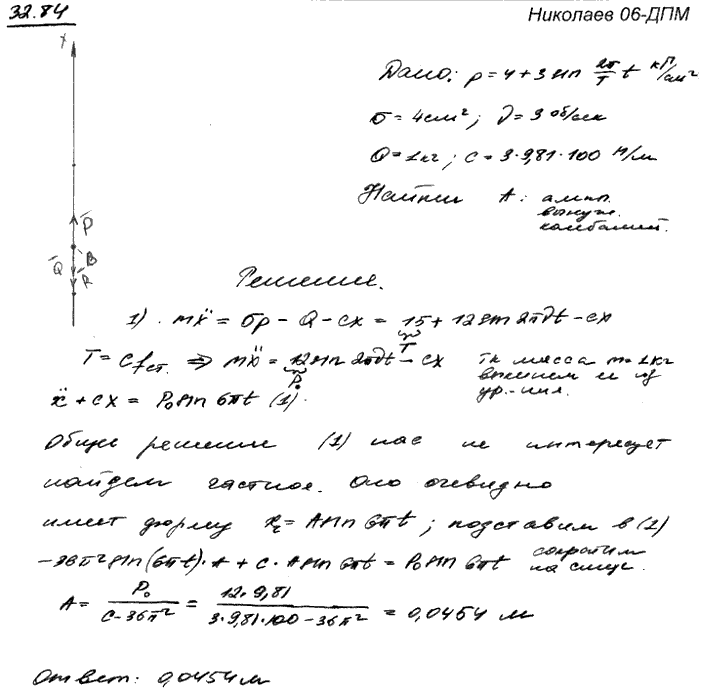 32.84
Николаев 06-ДПМ
x
Дано: p = 4 + 3 sin 2π/T t кГ/см²
σ = 4 см²; ∂ = 3 об/сек
Q = 1 кг; c = 3·9,81·100 Н/м
Найти A: ампл.
вынуж.
колебаний.
P̄
B
Q̄
R̄
Решение.
1). mẍ = σp - Q - cx = 15 + 12 sin 2π∂t - cx
T
T = cf ст. ⇒ mẍ = 12 sin 2π∂t - cx
P₀
тк масса m = 1 кг
выкинем ее из
ур.-ния.
ẍ + cx = P₀ sin 6πt (1).
Общее решение (1) нас не интересует
найдем частное. Оно очевидно
имеет форму x₂ = A sin 6πt; подставим в (1)
-36π² sin(6πt)·A + c·A sin 6πt = P₀ sin 6πt сократим
на синус.
A = P₀/(c-36π²) = 12·9,81/(3·9,81·100-36π²) = 0,0454 м
Ответ: 0,0454 м